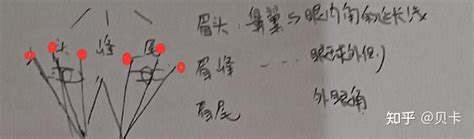 头 峰 尾
眉头：鼻翼与眼内角的延长线
眉峰 ---- 眼球外侧
眉尾 外眼角
知乎 @贝卡